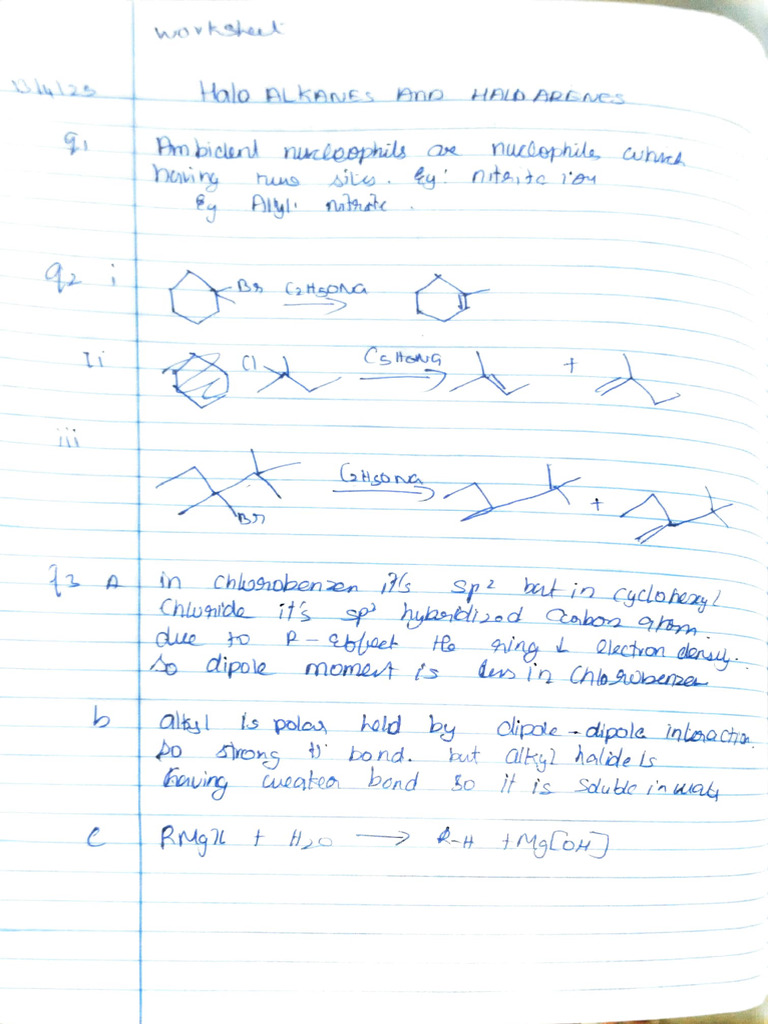 worksheet
13/4/25 Halo ALKANES AND HALO ARENES
q1 Ambident nucleophils are nuclophiles which
having two sites. Eg: nitrite ion
Eg Alyl nitrate.
q2 i Br C2H5ONa
Ii Cl C5HONa +
iii Br C2H5ONa +
q3 A in chlorobenzen it's sp² but in cyclohexyl
Chloride it's sp³ hyberdized Carbon atom.
due to R-effect the ring ↓ electron density.
so dipole moment is less in Chlorobenzen
b alkyl is polar held by dipole-dipole interaction.
so strong H bond. but alkyl halide Is
having weaker bond so it is soluble in water
c RMgX + H2O → R-H + Mg[OH]